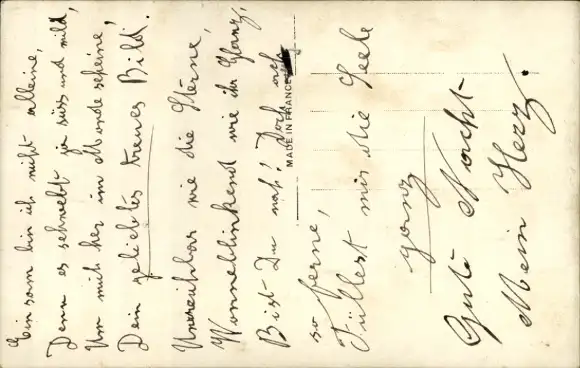 Einsam bin ich nicht alleine,
Denn es schwebt ja süss und mild,
Um mich her im Mondenscheine,
Dein geliebtes treues Bild.
Unerreichbar wie die Sterne,
Wonneblinkend wie ihr Glanz,
Bist Du nah! Doch ach
so ferne,
Füllest mir die Seele
ganz
Gute Nacht
Mein Herz.
MADE IN FRANCE